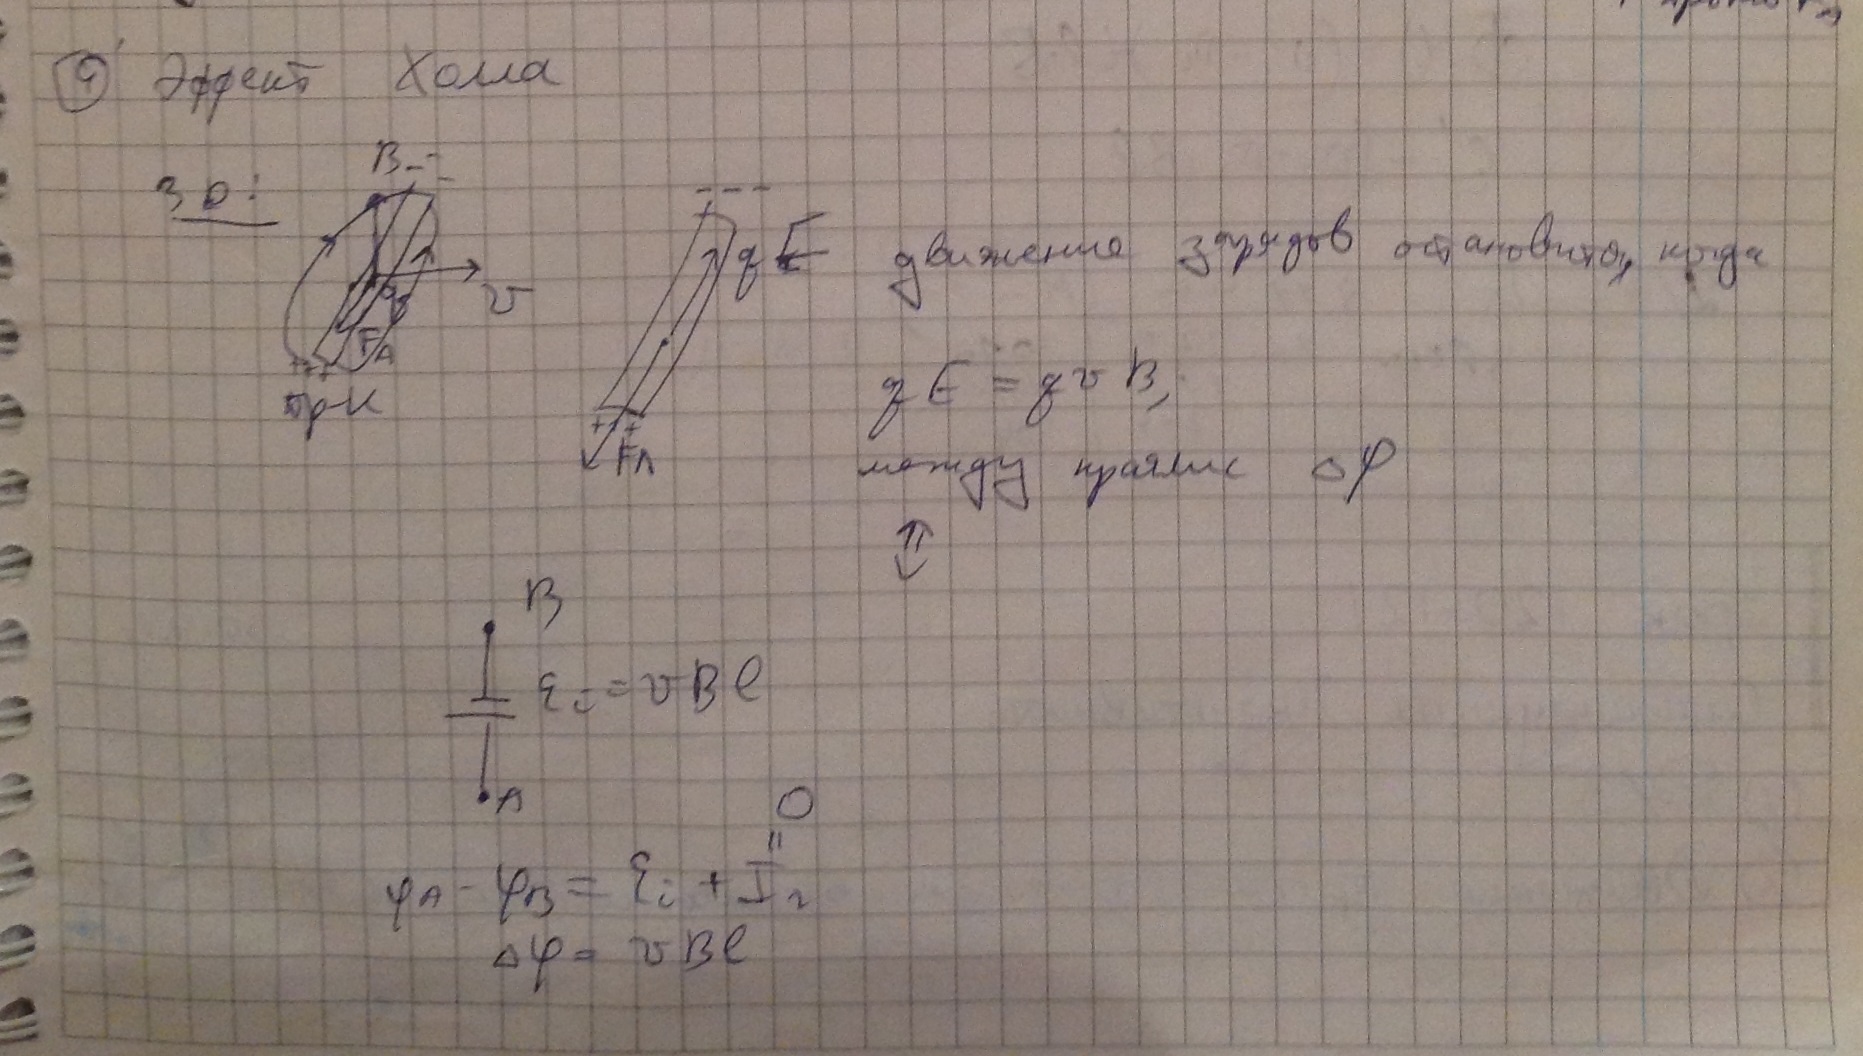 ④ Эффект Холла
3D:
B
- - -
v
q
FЛ
+++
пр-к
- - -
qE
+ +
FЛ
движение зарядов остановится, когда
qE = qvB,
между краями Δφ
⇕
B
Ɛi = vBl
A
0
॥
φA - φB = Ɛi + Ir
Δφ = vBl